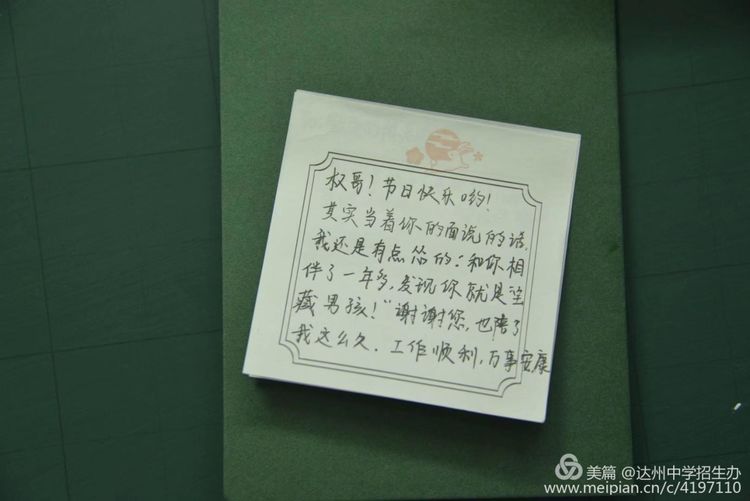 权哥！节日快乐哟！
其实当着你的面说的话，
我还是有点怂的：和你相
伴了一年多，发现你就是宝
藏男孩！"谢谢您，也陪了
我这么久．工作顺利，万事安康
美篇 @达州中学招生办
www.meipian.cn/c/4197110